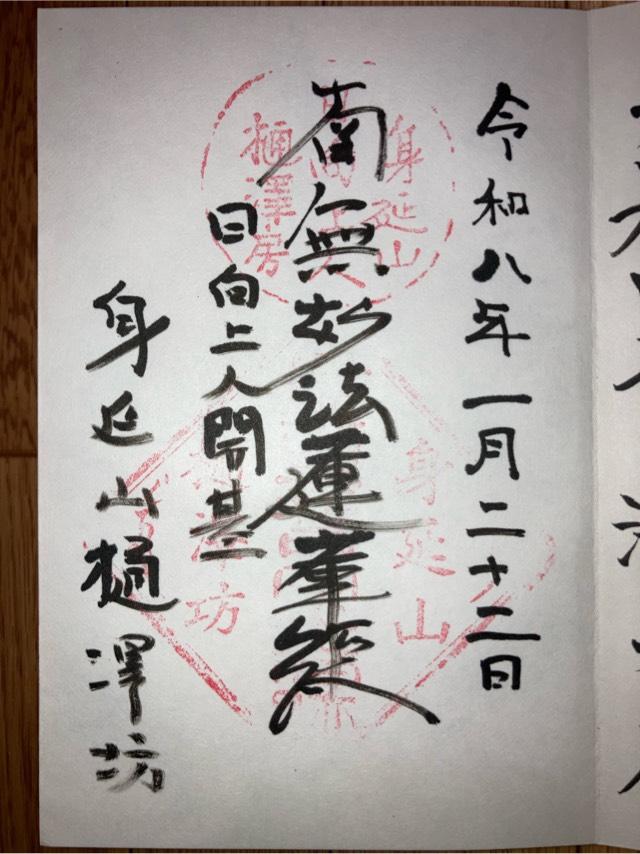 令和八年一月二十二日
南無妙法蓮華経
日向上人開基
身延山樋澤坊
身延山
樋澤房
身延山
澤坊